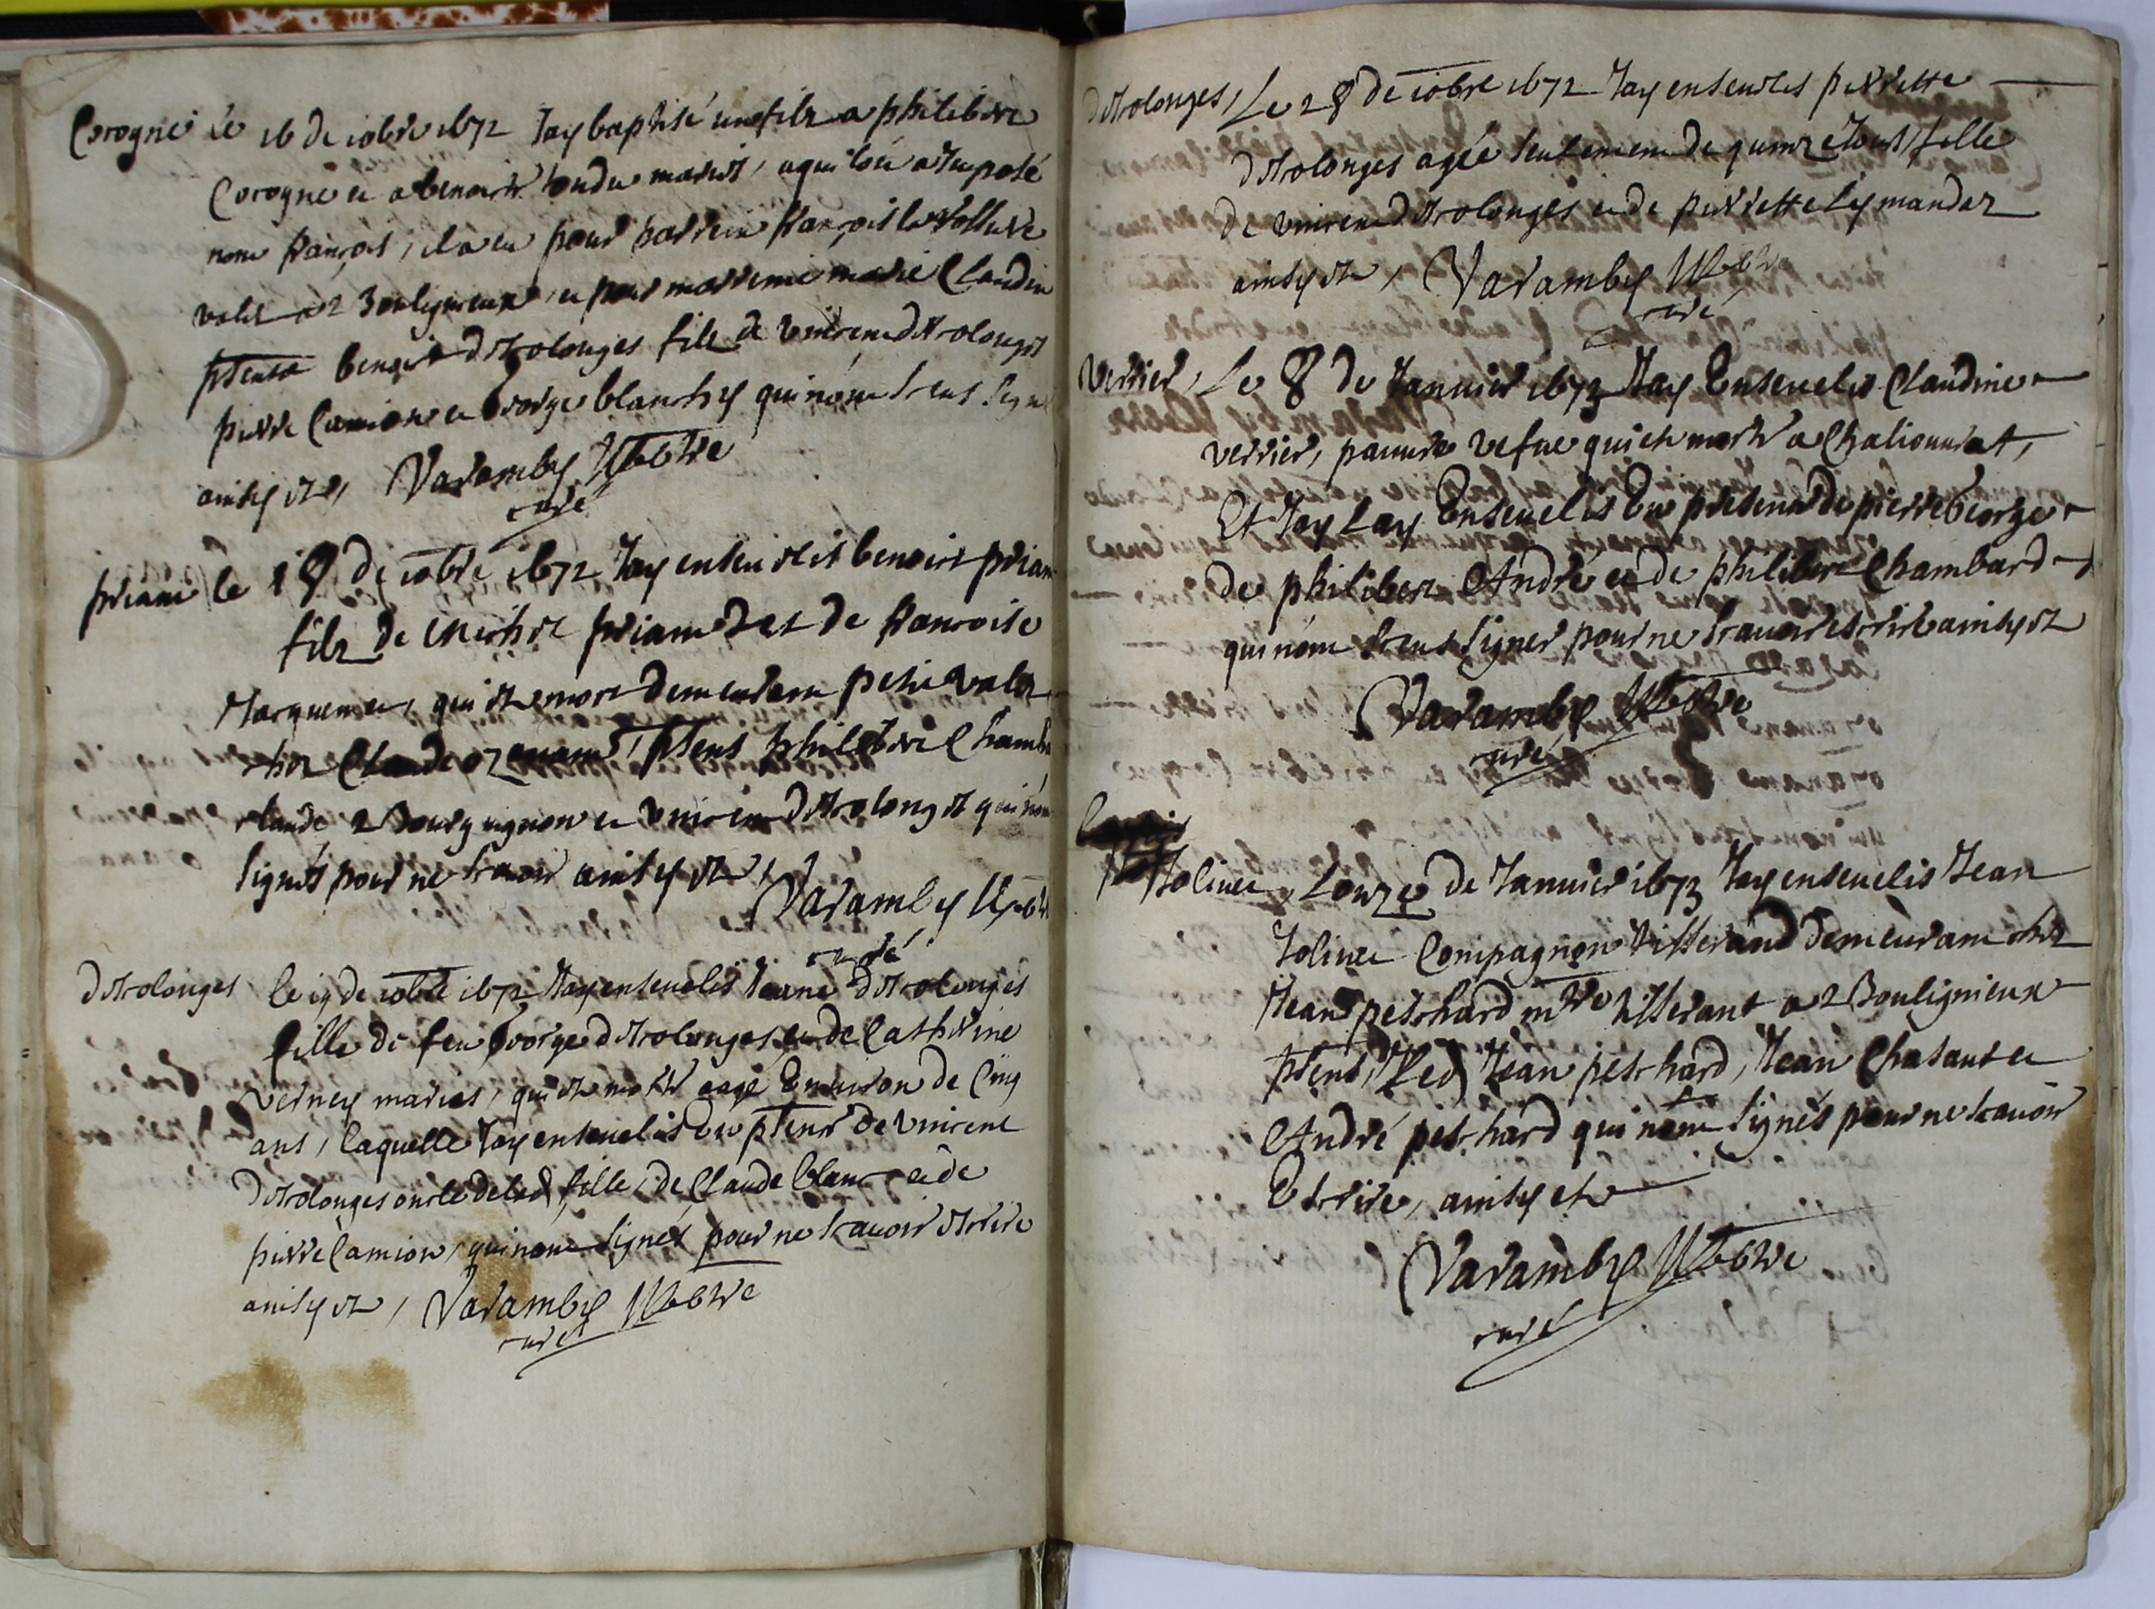 Corogne le 16 de iobre 1672 Jay baptisé un filz a philibere
Corogne et a benoiste tondu mariés, a qui lon a Imposé
nom françois, il a eu pour parrein françois la
valet a Bouligneux, et pour marreine marie Claudin
pñts benoist d'Etrolonges filz de vincent d'Etrolonges
pierre Camion et George blanchy qui nont sceus signe
ainsy est, Varamby Ptbre
curé
priam le 18 de iobre 1672 Jay enseuelis benoist priam
filz de Michel priam et de francoise
Jacquemet, qui est mort demeurant petit valet
chez Claude pñts philibere Chamb
claude Bourguignon et vincent d'Etrolonges qui nont
signés pour ne scauoir ainsy est
Varamby Ptbre
curé
d'Etrolonges le 19 de iobre 1672 Jay enseuelis Jeanne d'Etrolonges
fille de feu George d'Etrolonges et de Catherine
verney mariés, qui est morte aagé Enuiron de Cinq
ans, laquelle Jay enseuelis En pñce de vincent
d'Etrolonges oncle de lad fille, de Claude blanc et de
pierre Camion, qui nont signéz pour ne scauoir escrire
ainsy est, Varamby Ptbre
curé
d'Etrolonges, Le 28 de iobre 1672 Jay enseueles pierrette
d'Etrolonges agée seulement de quinze Jours, fille
de vincent d'Etrolonges et de pierrette Lymandaz
ainsy est, Varamby Ptbre
curé
Verrier, Le 8 de Januier 1673 Jay Enseuelis Claudine
verrier, pauure vefue qui est morte a Chaliouurat,
Et Jay Lay Enseuelis En presence de pierre George
de philibert André et de philibert Chambard
qui nont sceus signer pour ne scauoir escrire ainsy est
Varamby Ptbre
curé
Joliuet, Lonze de Januier 1673 Jay enseuelis Jean
Joliuet Compagnon tisserand demeurant chez
Jean petchard mre tisserant a Boulignieux
pñts, led Jean petchard, Jean Chasaut et
André petchard qui nont signés pour ne scauoir
Escrire, ainsy est
Varamby Ptbre
curé